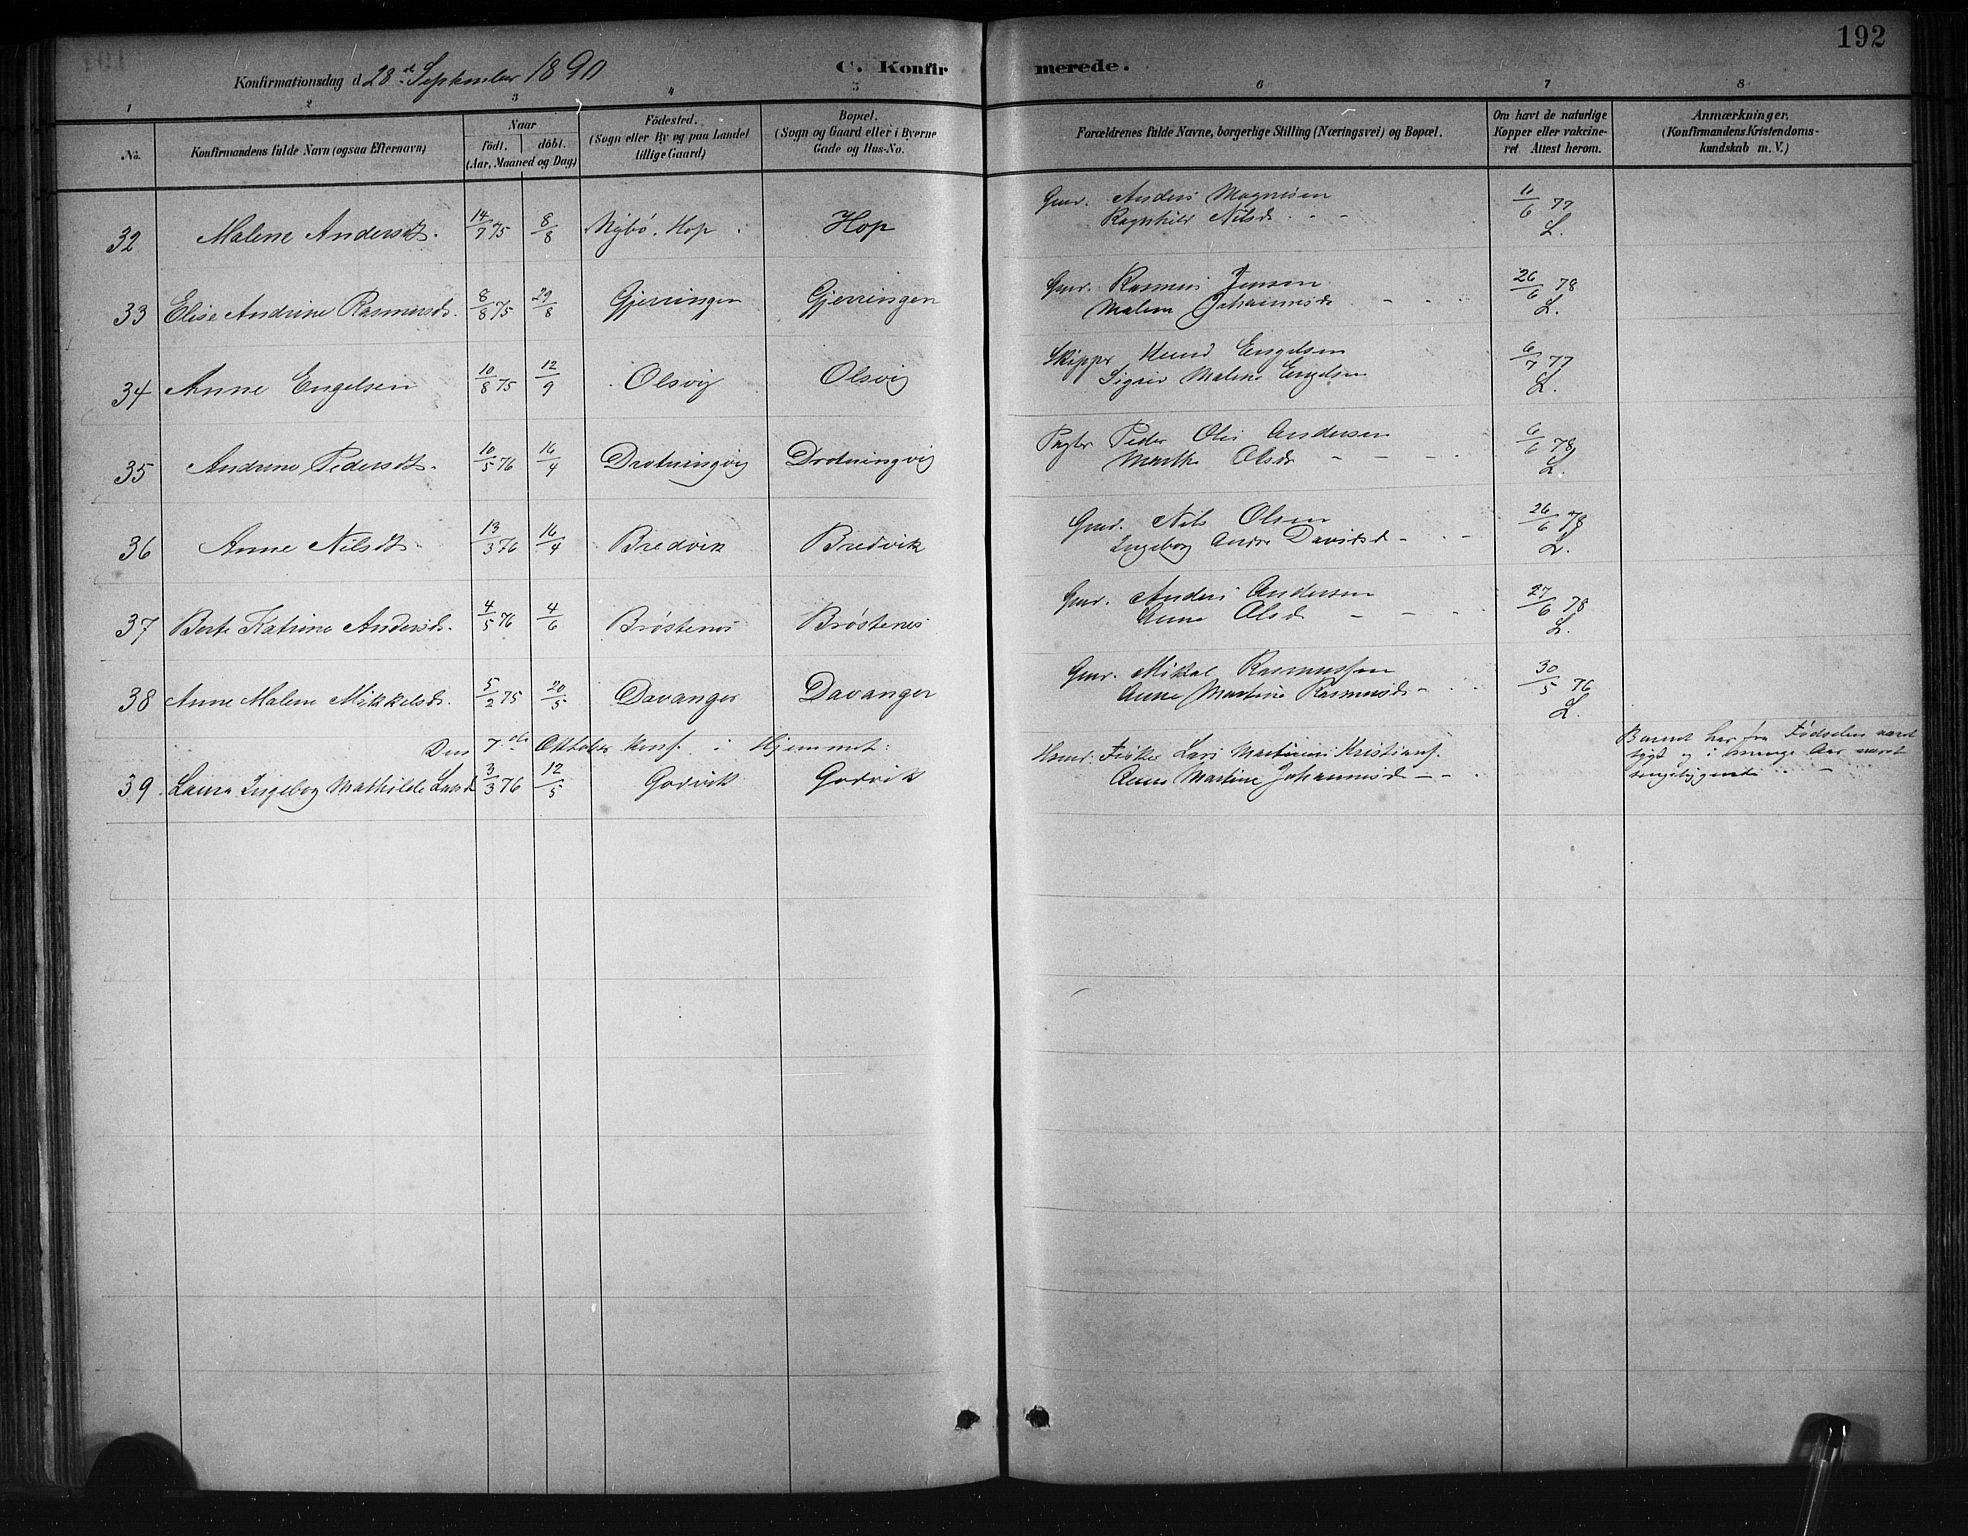 192
Konfirmationsdag d. 28de September 1890
C. Konfirmerede.
1 2 3 4 5 6 7 8
No.
Konfirmandens fulde Navn (ogsaa Efternavn)
Naar
födt. döbt.
(Aar, Maaned og Dag)
Födested.
(Sogn eller By og paa Landet
tillige Gaard)
Bopæl.
(Sogn og Gaard eller i Byerne
Gade og Hus-No.
Forældrenes fulde Navne, borgerlige Stilling (Næringsvei) og Bopæl.
Om havt de naturlige
Kopper eller vakcine-
ret. Attest herom.
Anmærkninger.
(Konfirmandens Kristendoms-
kundskab m. V.)
32 Malene Andersdt. 14/7 75 8/8 Nybø, Hop Hop Gmd. Anders Magnesen
Ragnhild Nilsd. - - 11/6 77 L.
33 Elise Andrine Rasmusd. 8/8 75 29/8 Gjerringen Gjerringen Gmd. Rasmus Jensen
Malene Johannesd. - - 26/6 78 L.
34 Anne Engelsen 10/8 75 12/9 Olsvig Olsvig Skipper Knud Engelsen
Sigrid Malene Engelsen 6/7 77 L.
35 Andrine Pedersdt. 10/5 76 16/4 Drotningvig Drotningvig Peder Olai Andersen
Marthe Olsd. - - - - 6/6 78 L.
36 Anne Nilsdt. 13/3 76 16/4 Bredvik Bredvik Gmd. Nils Olsen
Ingeborg Andrea Davidsd - - - 26/6 78 L.
37 Berte Katrine Andersd. 4/5 76 4/6 Brøstenes Brøstenes Gmd. Anders Andersen
Anne Olsd. - - - 27/6 78 L.
38 Anne Malene Mikkelsd. 5/2 75 20/5 Davanger Davanger Gmd. Mikal Rasmussen
Anne Martine Rasmusd - - - 30/5 76 L.
Den 7de Oktober Konf. i Hjemmet:
39 Laura Ingeborg Mathilde Larsd. 3/3 76 12/5 Godvik Godvik Husmd. Fisker Lars Martinus Kristians.
Anne Martine Johannesd - - -
Barnet har fra Fødselen været
sygt og i mange Aar været
sengeliggende - -